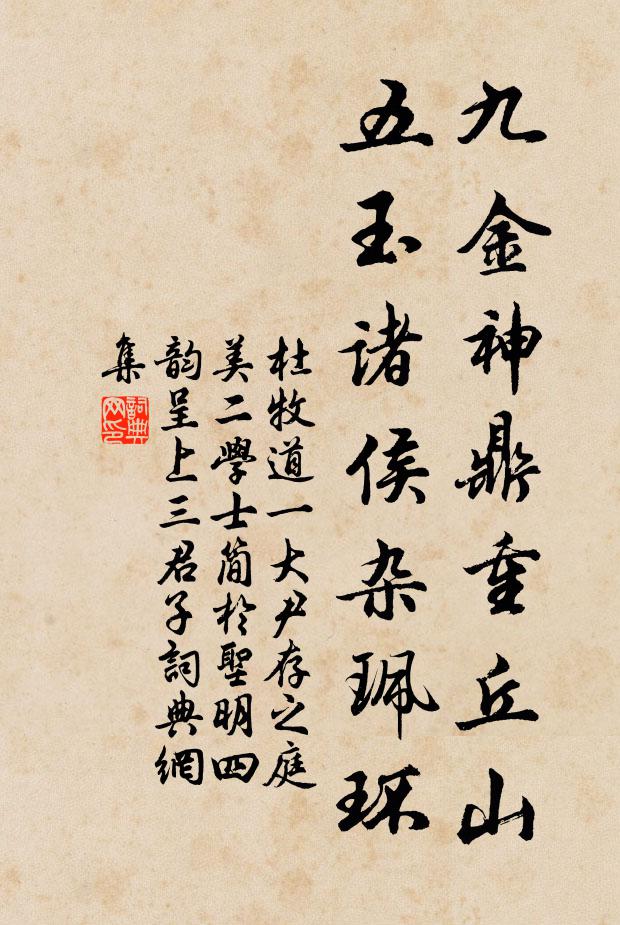 九金神鼎重丘山
五玉诸侯杂珮环
杜牧道一大尹存之庭
美二學士简於聖明四
韵呈上三君子詞典網
集
詞典
网印